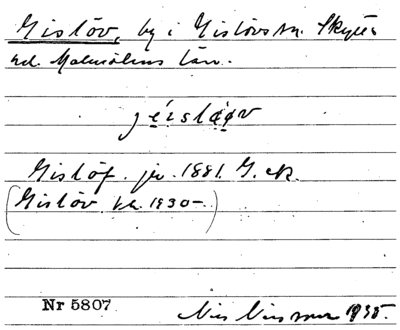 Gislöv, by i Gislövs sn. Skytts
hd. Malmöhus län.
Gislöf. jv. 1881. G. ek.
(Gislöv kk. 1930-)
Nr 5807 Nils Nilsson 1935.